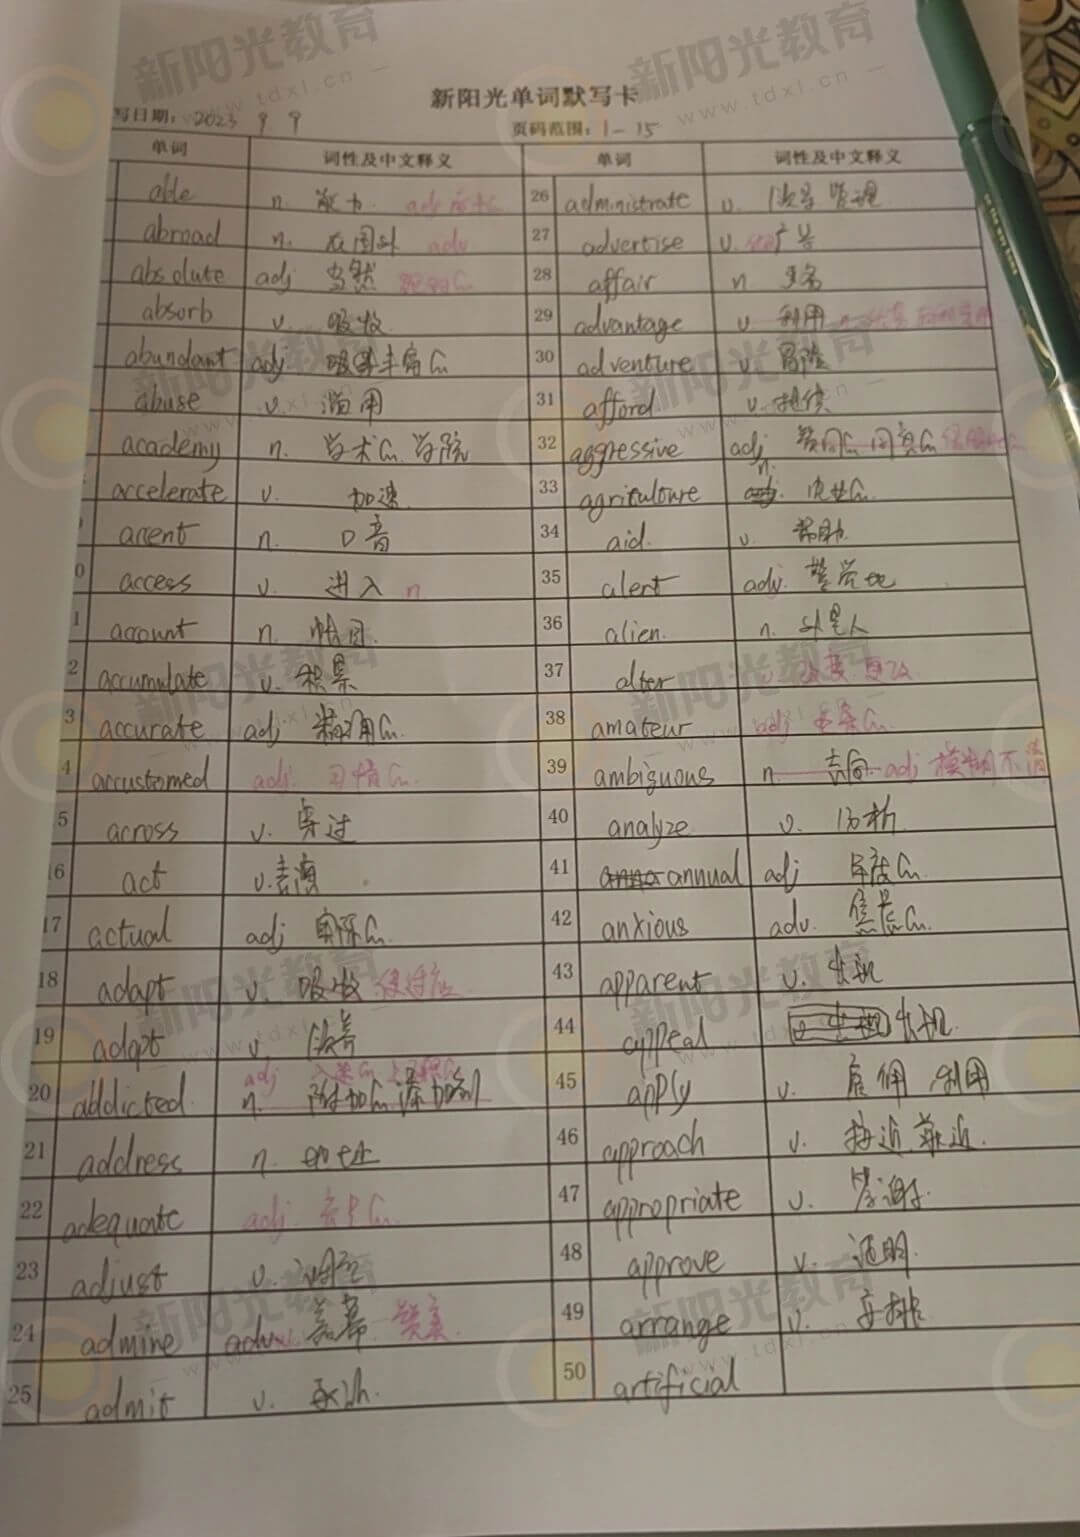 新阳光单词默写卡
写日期: 2023 9. 9 页码范围: 1-15
单词 词性及中文释义 单词 词性及中文释义
able n. 能力 26 administrate v. 管理
abroad n. 在国外 adv 27 advertise v. 广告
absolute adj 当然 28 affair n.
absorb v. 吸收 29 advantage v 利用 n
abundant adj 丰富 30 adventure v. 冒险
abuse v. 滥用 31 afford v. 提供
academy n. 学术 学院 32 aggressive adj
accelerate v. 加速 33 agriculture n. 农业
accent n. 口音 34 aid v. 帮助
0 access v. 进入 n 35 alert adj. 警觉地
1 account n. 帐目 36 alien n. 外星人
2 accumulate v. 积累 37 alter 改变 更改
3 accurate adj 38 amateur adj 业余
4 accustomed adj. 习惯 39 ambiguous n. 志向 adj 模糊不清
5 across v. 穿过 40 analyze v. 分析
16 act v. 表演 41 annual adj 年度
17 actual adj 实际 42 anxious adv. 焦虑
18 adapt v. 吸收 使适应 43 apparent v. 出现
19 adopt v. 44 appeal 出现
20 addicted adj 入迷 n. 附加 添加剂 45 apply v. 雇佣 利用
21 address n. 地址 46 approach v. 接近 靠近
22 adequate adj. 充足 47 appropriate v. 感谢
23 adjust v. 调整 48 approve v. 证明
24 admire adv. 羡慕 赞美 49 arrange v. 安排
25 admit v. 承认 50 artificial